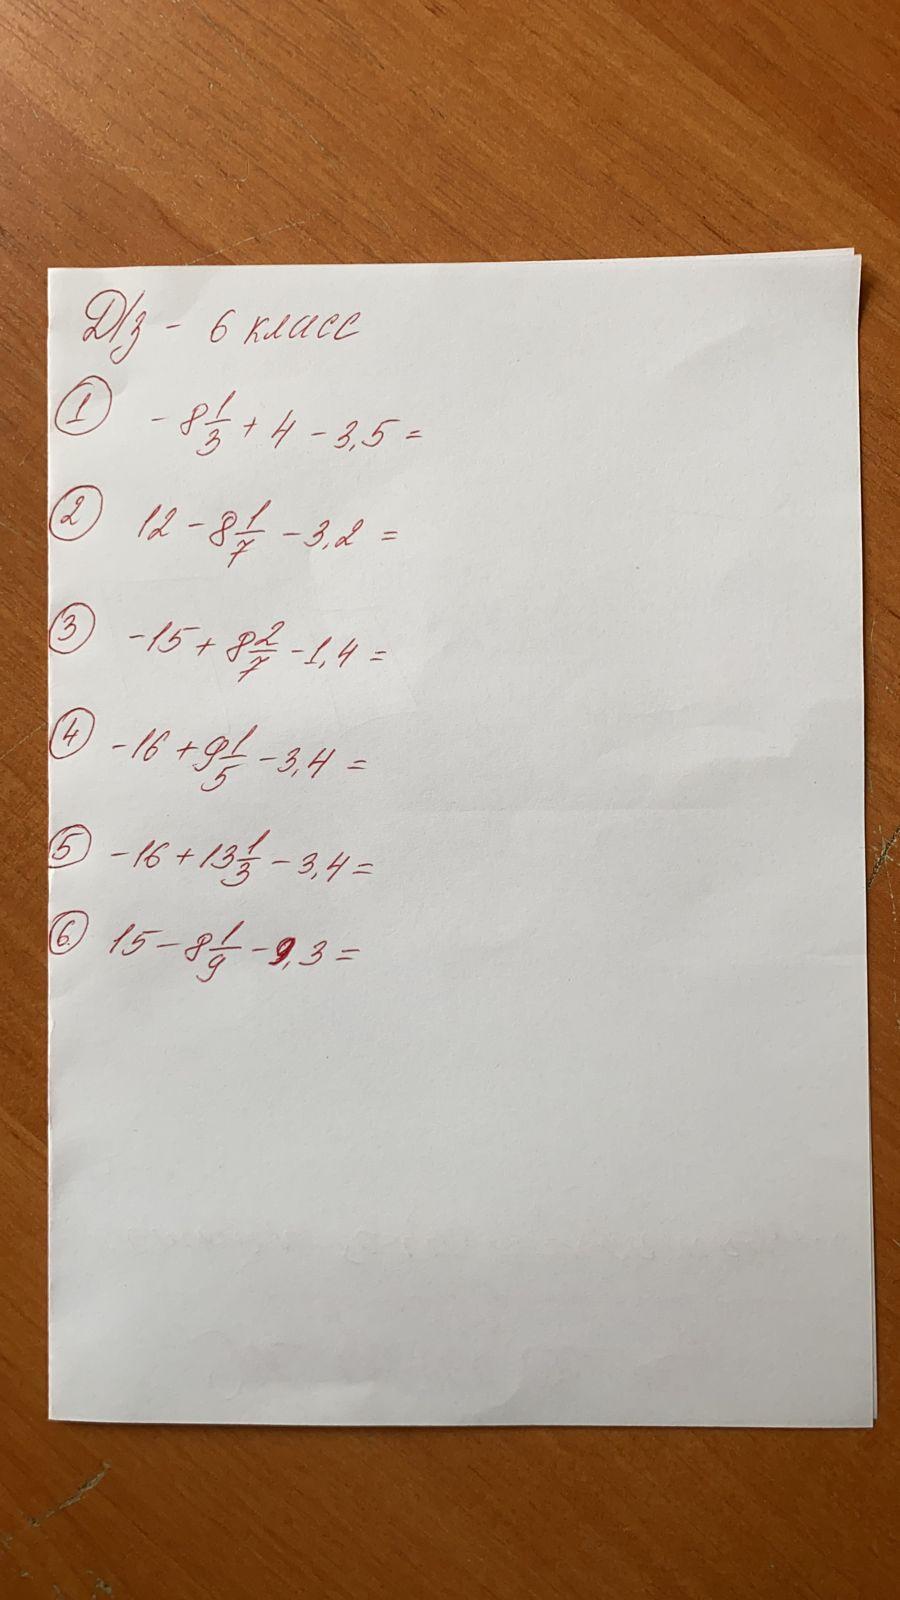 Д/з - 6 класс
① - 8 1/3 + 4 - 3,5 =
② 12 - 8 1/7 - 3,2 =
③ -15 + 8 2/7 - 1,4 =
④ -16 + 9 1/5 - 3,4 =
⑤ -16 + 13 1/3 - 3,4 =
⑥ 15 - 8 1/9 - 9,3 =